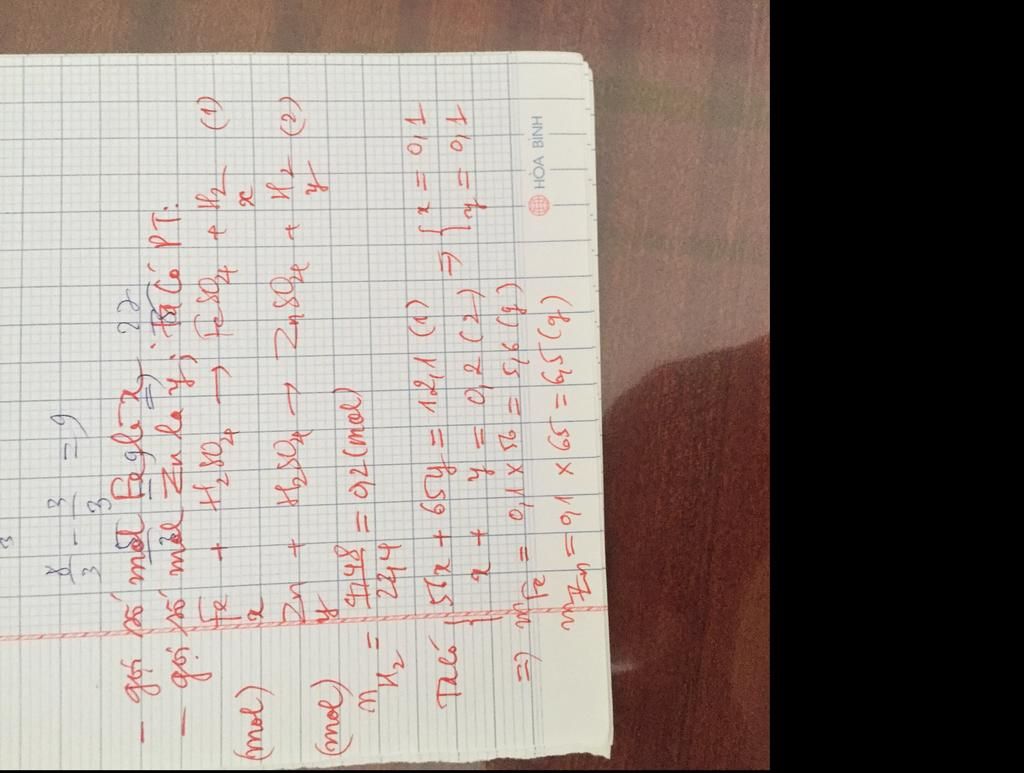 3
8/3 - 3/3 = 9
- gọi số mol Fe là x
22
- gọi số mol Zn là y; Ta Có PT:
Fe + H2SO4 → FeSO4 + H2 (1)
(mol) x x
Zn + H2SO4 → ZnSO4 + H2 (2)
(mol) y y
nH2 = 4,48/22,4 = 0,2 (mol)
Ta có { 56x + 65y = 12,1 (1) ⇒ { x = 0,1
x + y = 0,2 (2) y = 0,1
⇒ mFe = 0,1 x 56 = 5,6 (g)
mZn = 0,1 x 65 = 6,5 (g)
HÒA BÌNH